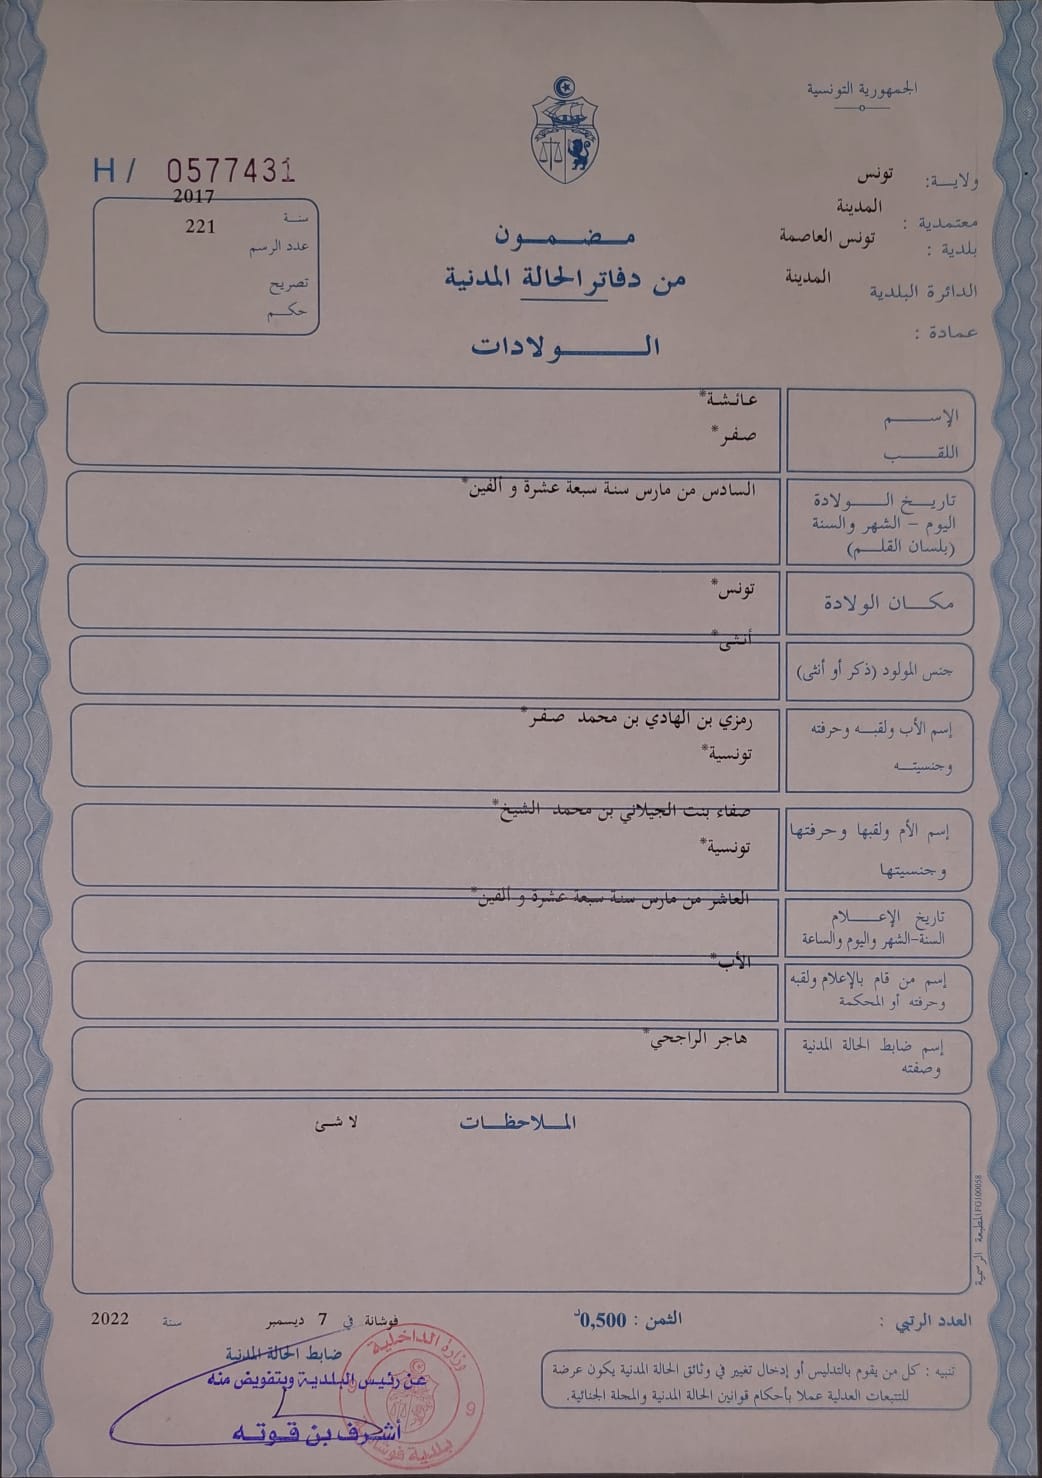 الجمهورية التونسية
ولايـــة: تونس
معتمدية : المدينة
بلدية : تونس العاصمة
الدائرة البلدية المدينة
عمادة :
H/ 0577431
سنة 2017
عدد الرسم 221
تصريح
حكـــم
مـضـمـــون
من دفاتر الحالة المدنية
الـــــــولادات
الإســـــم عـائـشـة*
اللقـــــب صـفـر*
تاريـــخ الـــــولادة السادس من مارس سنة سبعة عشرة و ألفين*
اليوم – الشهر والسنة
(بلسان القلـــم)
مكـــان الولادة تونس*
أنـثـى*
جنس المولود (ذكر أو أنثى)
إسم الأب ولقبـــه وحرفته رمزي بن الهادي بن محمد صـفـر*
وجنسيتـــه تونسية*
إسم الأم ولقبها وحرفتها صفاء بنت الجيلاني بن محمد الشيخ*
وجنسيتها تونسية*
العاشر من مارس سنة سبعة عشرة و ألفين*
تاريخ الإعـــــلام
السنة-الشهر واليوم والساعة
الأب*
إسم من قام بالإعلام ولقبه
وحرفته أو المحكمة
إسم ضابط الحالة المدنية هاجر الراجحي*
وصفته
المـــلاحظـــات لا شئ
المطبعة الرسمية FG100058
العدد الرتبي :
الثمن : 0,500د
فوشانة في 7 ديسمبر سنة 2022
ضابط الحالة المدنية
عن رئيس البلدية وبتفويض منه
أشرف بن قوته
وزارة الداخلية
بلدية فوشانة
9
تنبيه : كل من يقوم بالتدليس أو إدخال تغيير في وثائق الحالة المدنية يكون عرضة
للتتبعات العدلية عملا بأحكام قوانين الحالة المدنية والمجلة الجنائية.